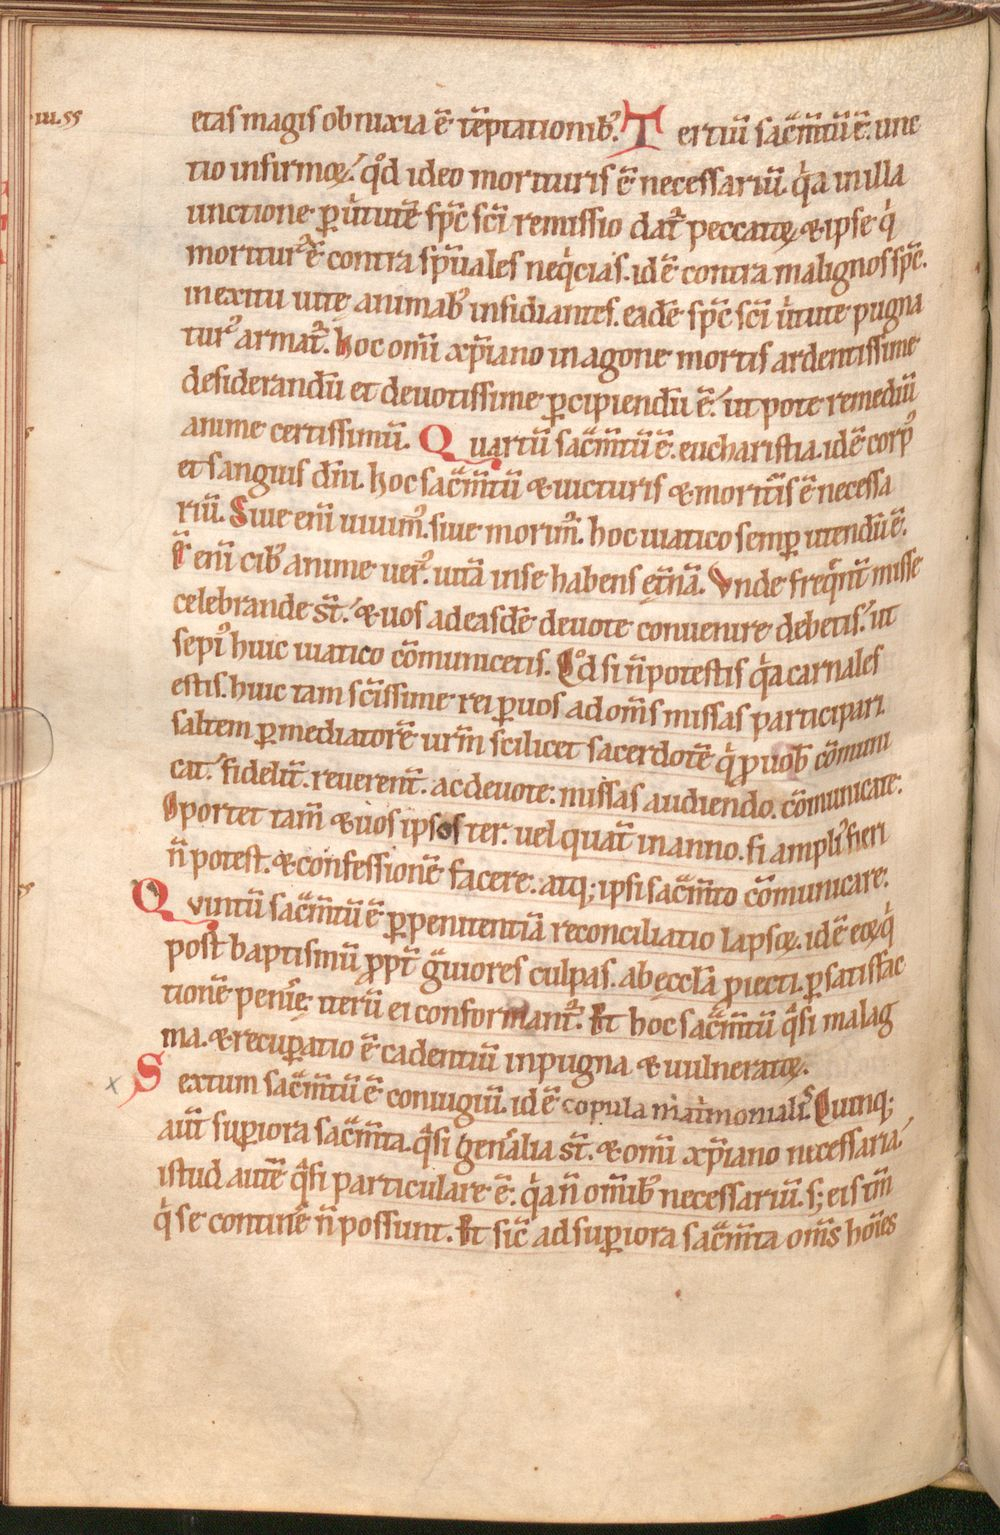 .iii. ss
etas magis obnixia ē tēptationib᷒. Tertiū sac̄m̄tū ē. unc
tio infirmoꝝ. qd̊ ideo morituris ē necessariū. qͥa in illa
unctione ꝑ uͥtutē sp̄c sc̄i remissio dat᷑ peccatoꝝ. & ipse qͥ
moritur᷒ ē contra sp̄uales neqͥcias. id ē contra malignos sp̄c.
in exitu uitę animab᷒ insidiantes. eadē sp̄c sc̄i uͥtute pugna
tur᷒ armat᷑. hoc om̄i xp̄iano in agone mortis ardentissime
desiderandū et deuotissime ꝑcipiendū ē. ut pote remediū
anime certissimū. Quartū sac̄m̄tū ē. eucharistia. id ē corp᷒
et sanguis dn̄i. hoc sac̄m̄tū & uicturis & morit̄is ē necessa
riū. Siue eni̅ uiuim᷒. siue morim᷒. hoc uiatico semꝑ utendū ē.
Ē eni̅ cib᷒ anime uer᷒. uitā in se habens et̄nā. Vnde freqn̄t̄ misse
celebrande st̄. & uos ad easdē deuote conuenire debetis. ut
sepi᷒ huic uiatico cōmunicetis. Qd̊ si n̄ potestis qͣa carnales
estis. huic tam sc̄issime rei ꝑ uos ad om̄s missas participari
saltem ꝑ mediatorē ur̄m scilicet sacerdotē qͥ ꝓ uob̄ cōmuni
cat. fidelit̄. reuerent̄. ac deuote. missas audiendo. cōmunicate.
Oportet tam̄ & uos ipsos ter. uel quat̄ in anno. si ampli᷒ fieri
n̄ potest. & confessionē facere. atq; ipsi sac̄m̄to cōmunicare.
Quintū sac̄m̄tū ē ꝑ penitentiā reconciliatio lapsoꝝ. id ē eoꝝ qͥ
post baptismū ꝓpt̄ gͣuiores culpas. ab ęccl̄a ꝓiecti. ꝑ satisfac
tionē penit̄ę iterū ei conformant᷑. Et hoc sac̄m̄tū qͣsi malag
ma. & recuꝑatio ē cadentiū in pugna & uulneratoꝝ.
x Sextum sac̄m̄tū ē coniugiū. id ē copula mat̄imonialis. Quinq;
aut̄ suꝑiora sac̄m̄ta. qͣsi gen̄alia st̄. & om̄i xp̄iano necessaria.
istud autē qͣsi particulare ē. qͥa n̄ om̄ib᷒ necessariū. s; eis tm̄
qͥ se continē n̄ possunt. Et sic̄ ad suꝑiora sac̄m̄ta om̄s hoīes